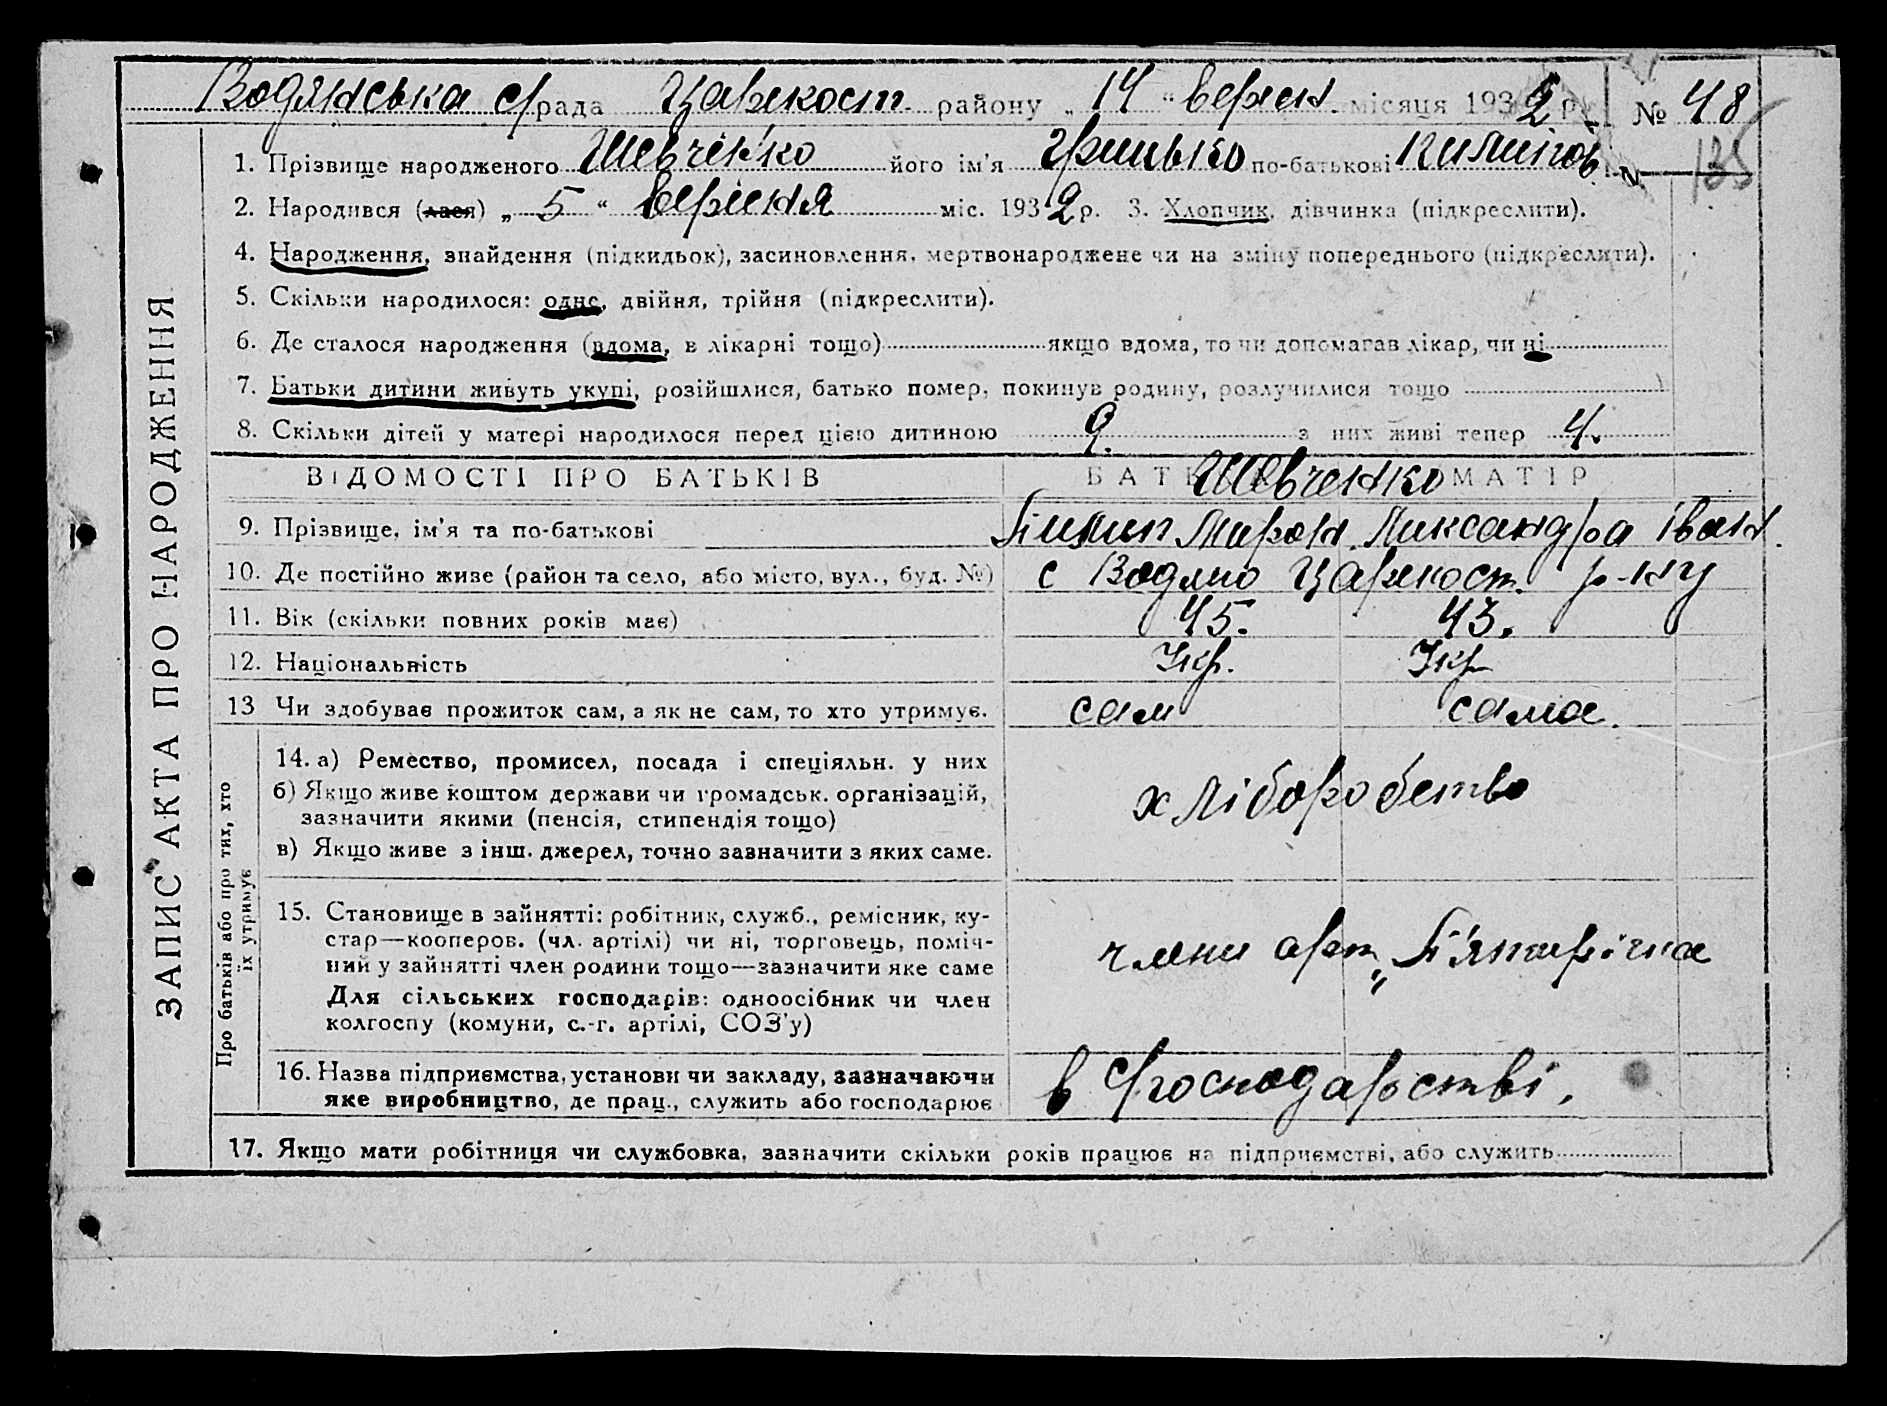 Водянська с/рада Царекост. району „14“ вересн. місяця 1932 р. № 48
1. Прізвище народженого Шевченко його ім'я Грицько по-батькові 135
2. Народився (лася) „5“ вересня міс. 1932 р. 3. Хлопчик, дівчинка (підкреслити).
4. Народження, знайдення (підкидьок), засиновлення, мертвонароджене чи на зміну попереднього (підкреслити).
5. Скільки народилося: одне, двійня, трійня (підкреслити).
6. Де сталося народження (вдома, в лікарні тощо) якщо вдома, то чи допомагав лікар, чи ні
7. Батьки дитини живуть укупі, розійшлися, батько помер, покинув родину, розлучилися тощо
8. Скільки дітей у матері народилося перед цією дитиною 9. з них живі тепер 4.
ВІДОМОСТІ ПРО БАТЬКІВ БАТЬКО МАТІР
Шевченко
9. Прізвище, ім'я та по-батькові Пилип Мирон. Ликсандра Іван.
10. Де постійно живе (район та село, або місто, вул., буд. №) с Водяно Царекост. р-ну
11. Вік (скільки повних років має) 45. 43.
12. Національність Укр. Укр
13 Чи здобуває прожиток сам, а як не сам, то хто утримує. сам сама.
14. а) Ремество, промисел, посада і спеціяльн. у них
б) Якщо живе коштом держави чи громадськ. організацій,
зазначити якими (пенсія, стипендія тощо)
хліборобство
в) Якщо живе з інш. джерел, точно зазначити з яких саме.
15. Становище в зайнятті: робітник, служб., ремісник, ку-
стар—кооперов. (чл. артілі) чи ні, торговець, поміч-
ний у зайнятті член родини тощо—зазначити яке саме
члени арт. „П'ятирічка
Для сільських господарів: одноосібник чи член
колгоспу (комуни, с.-г. артілі, СОЗ'у)
16. Назва підприємства, установи чи закладу, зазначаючи
яке виробництво, де прац., служить або господарює
в с/господарстві.
17. Якщо мати робітниця чи службовка, зазначити скільки років працює на підприємстві, або служить
ЗАПИС АКТА ПРО НАРОДЖЕННЯ
Про батьків або про тих, хто
їх утримує